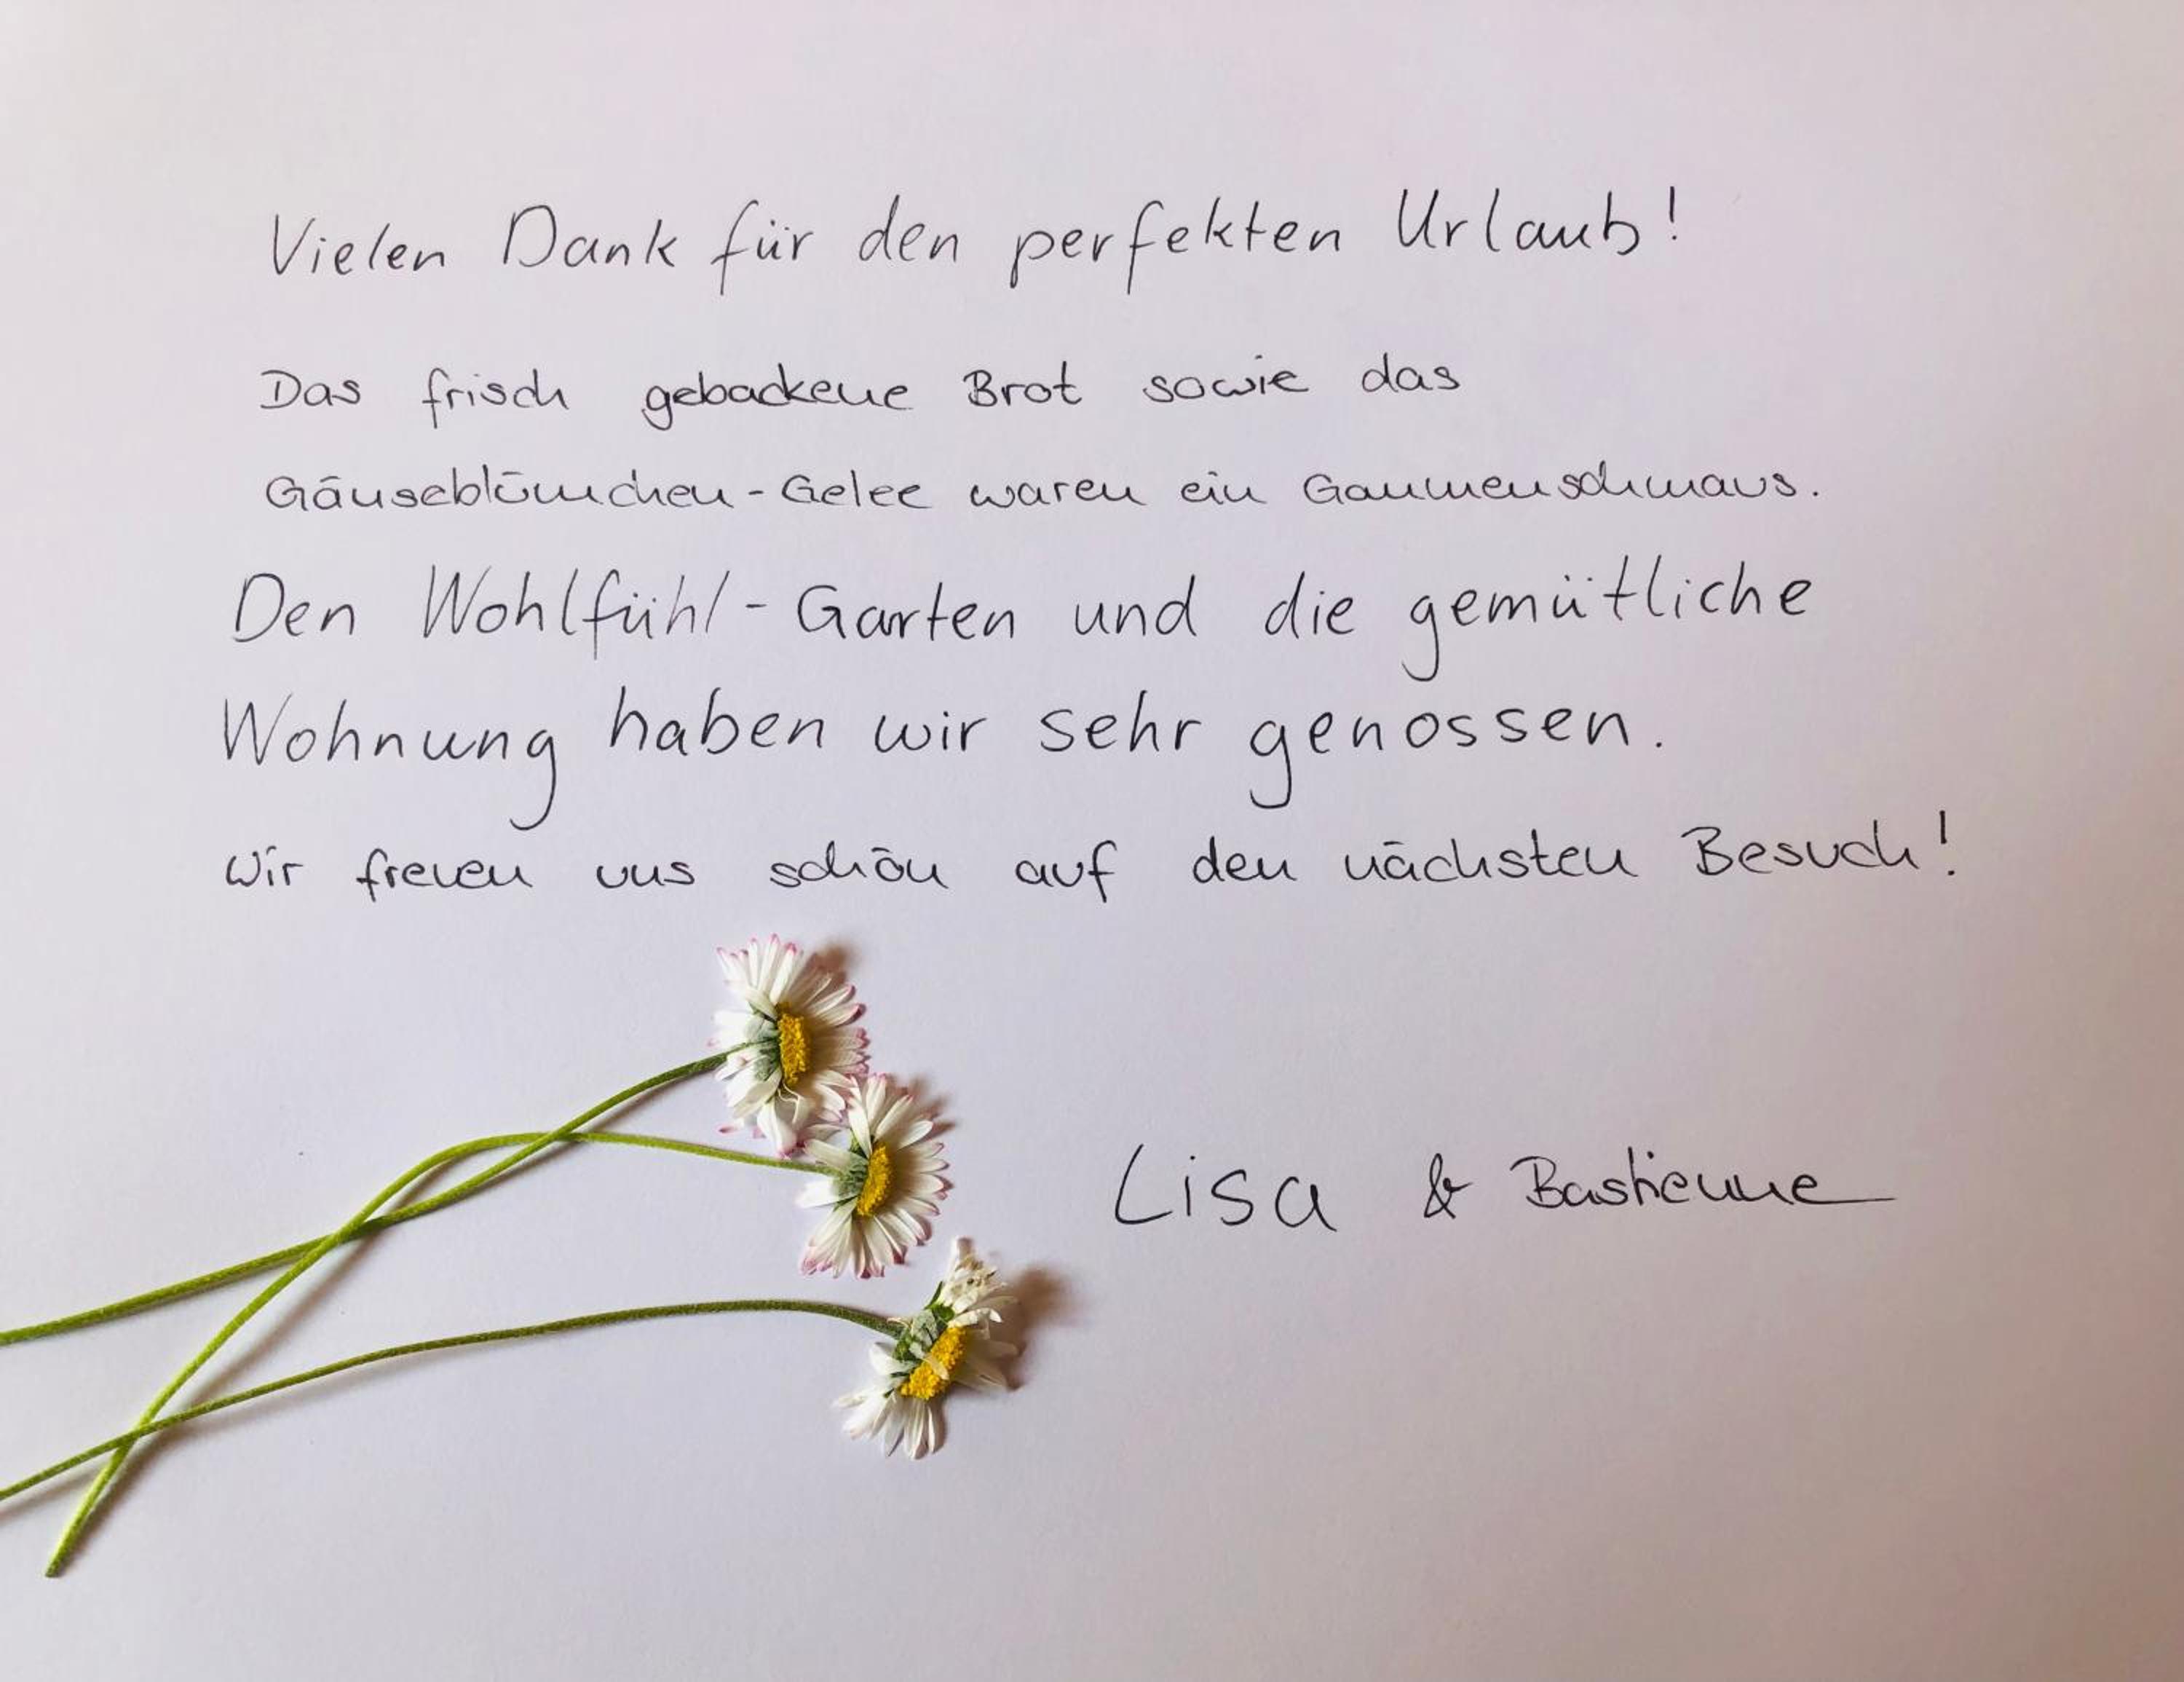 Vielen Dank für den perfekten Urlaub!
Das frisch gebackene Brot sowie das
Gäuseblümchen-Gelee waren ein Gaumenschmaus.
Den Wohlfühl-Garten und die gemütliche
Wohnung haben wir sehr genossen.
Wir freuen uns schön auf den nächsten Besuch!
Lisa & Bastienne